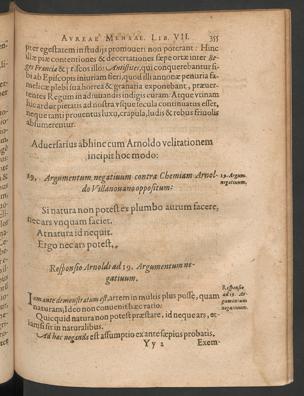 AVREAE MENSAE. LIB. VII. 355
pter egestatem in studijs promoueri non poterant: Hinc
illæ piæ contentiones & decertationes sæpe ortæ inter Re-
ges Franciæ & piscos illos Antistites, qui conquerebantur si-
bi ab Episcopis iniuriam fieri, quod illi annonæ penuria fa-
melicæ plebi sua horrea & granaria exponebant, præuer-
tentes Regum in adiuuandis indigis curam. Atque vtinam
hic ardor pietatis ad nostra vsque secula continuatus esset,
neque tanti prouentus luxu, crapula, ludis & rebus friuolis
absumerentur.
Aduersarius abhinc cum Arnoldo velitationem
incipit hoc modo:
19. Argumentum negatiuum contra Chemiam Arnol-
do Villanouano oppositum:
19. Argum.
negatiuum.
Si natura non potest ex plumbo aurum facere,
nec ars vnquam faciet.
At natura id nequit.
Ergo nec ars potest.
Responsio Arnoldi ad 19. Argumentum ne-
gatiuum.
Responsio
ad 19. Ar-
gumentum
negatiuum.
Iam ante demonstratum est artem in multis plus posse, quam
naturam, Ideo non conuenit hæc ratio:
Quicquid natura non potest præstare, id neque ars, et-
iamsi sit in naturalibus.
Ad hac negando est assumptio ex ante sæpius probatis,
Yy 2 Exem-